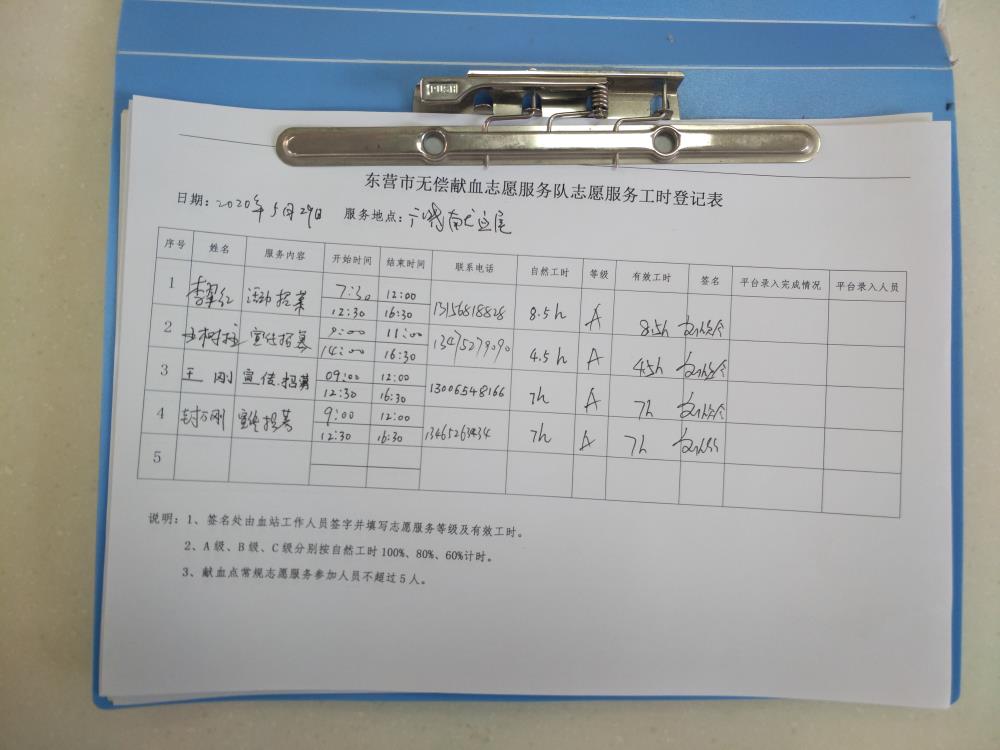 PUSH
东营市无偿献血志愿服务队志愿服务工时登记表
日期：2020年5月29日 服务地点：
序号 姓名 服务内容 开始时间 结束时间 联系电话 自然工时 等级 有效工时 签名 平台录入完成情况 平台录入人员
1 李翠红 活动招募 7:30 12:00 13156818828 8.5h A 8.5h
12:30 16:30
2 王树 宣传招募 9:00 11:00 13475279090 4.5h A 4.5h
14:00 16:30
3 王刚 宣传.招募 09:00 12:00 13006548166 7h A 7h
12:30 16:30
4 刚 宣传招募 9:00 12:00 7h A 7h
12:30 16:30
5
说明：1、签名处由血站工作人员签字并填写志愿服务等级及有效工时。
2、A级、B级、C级分别按自然工时100%、80%、60%计时。
3、献血点常规志愿服务参加人员不超过5人。